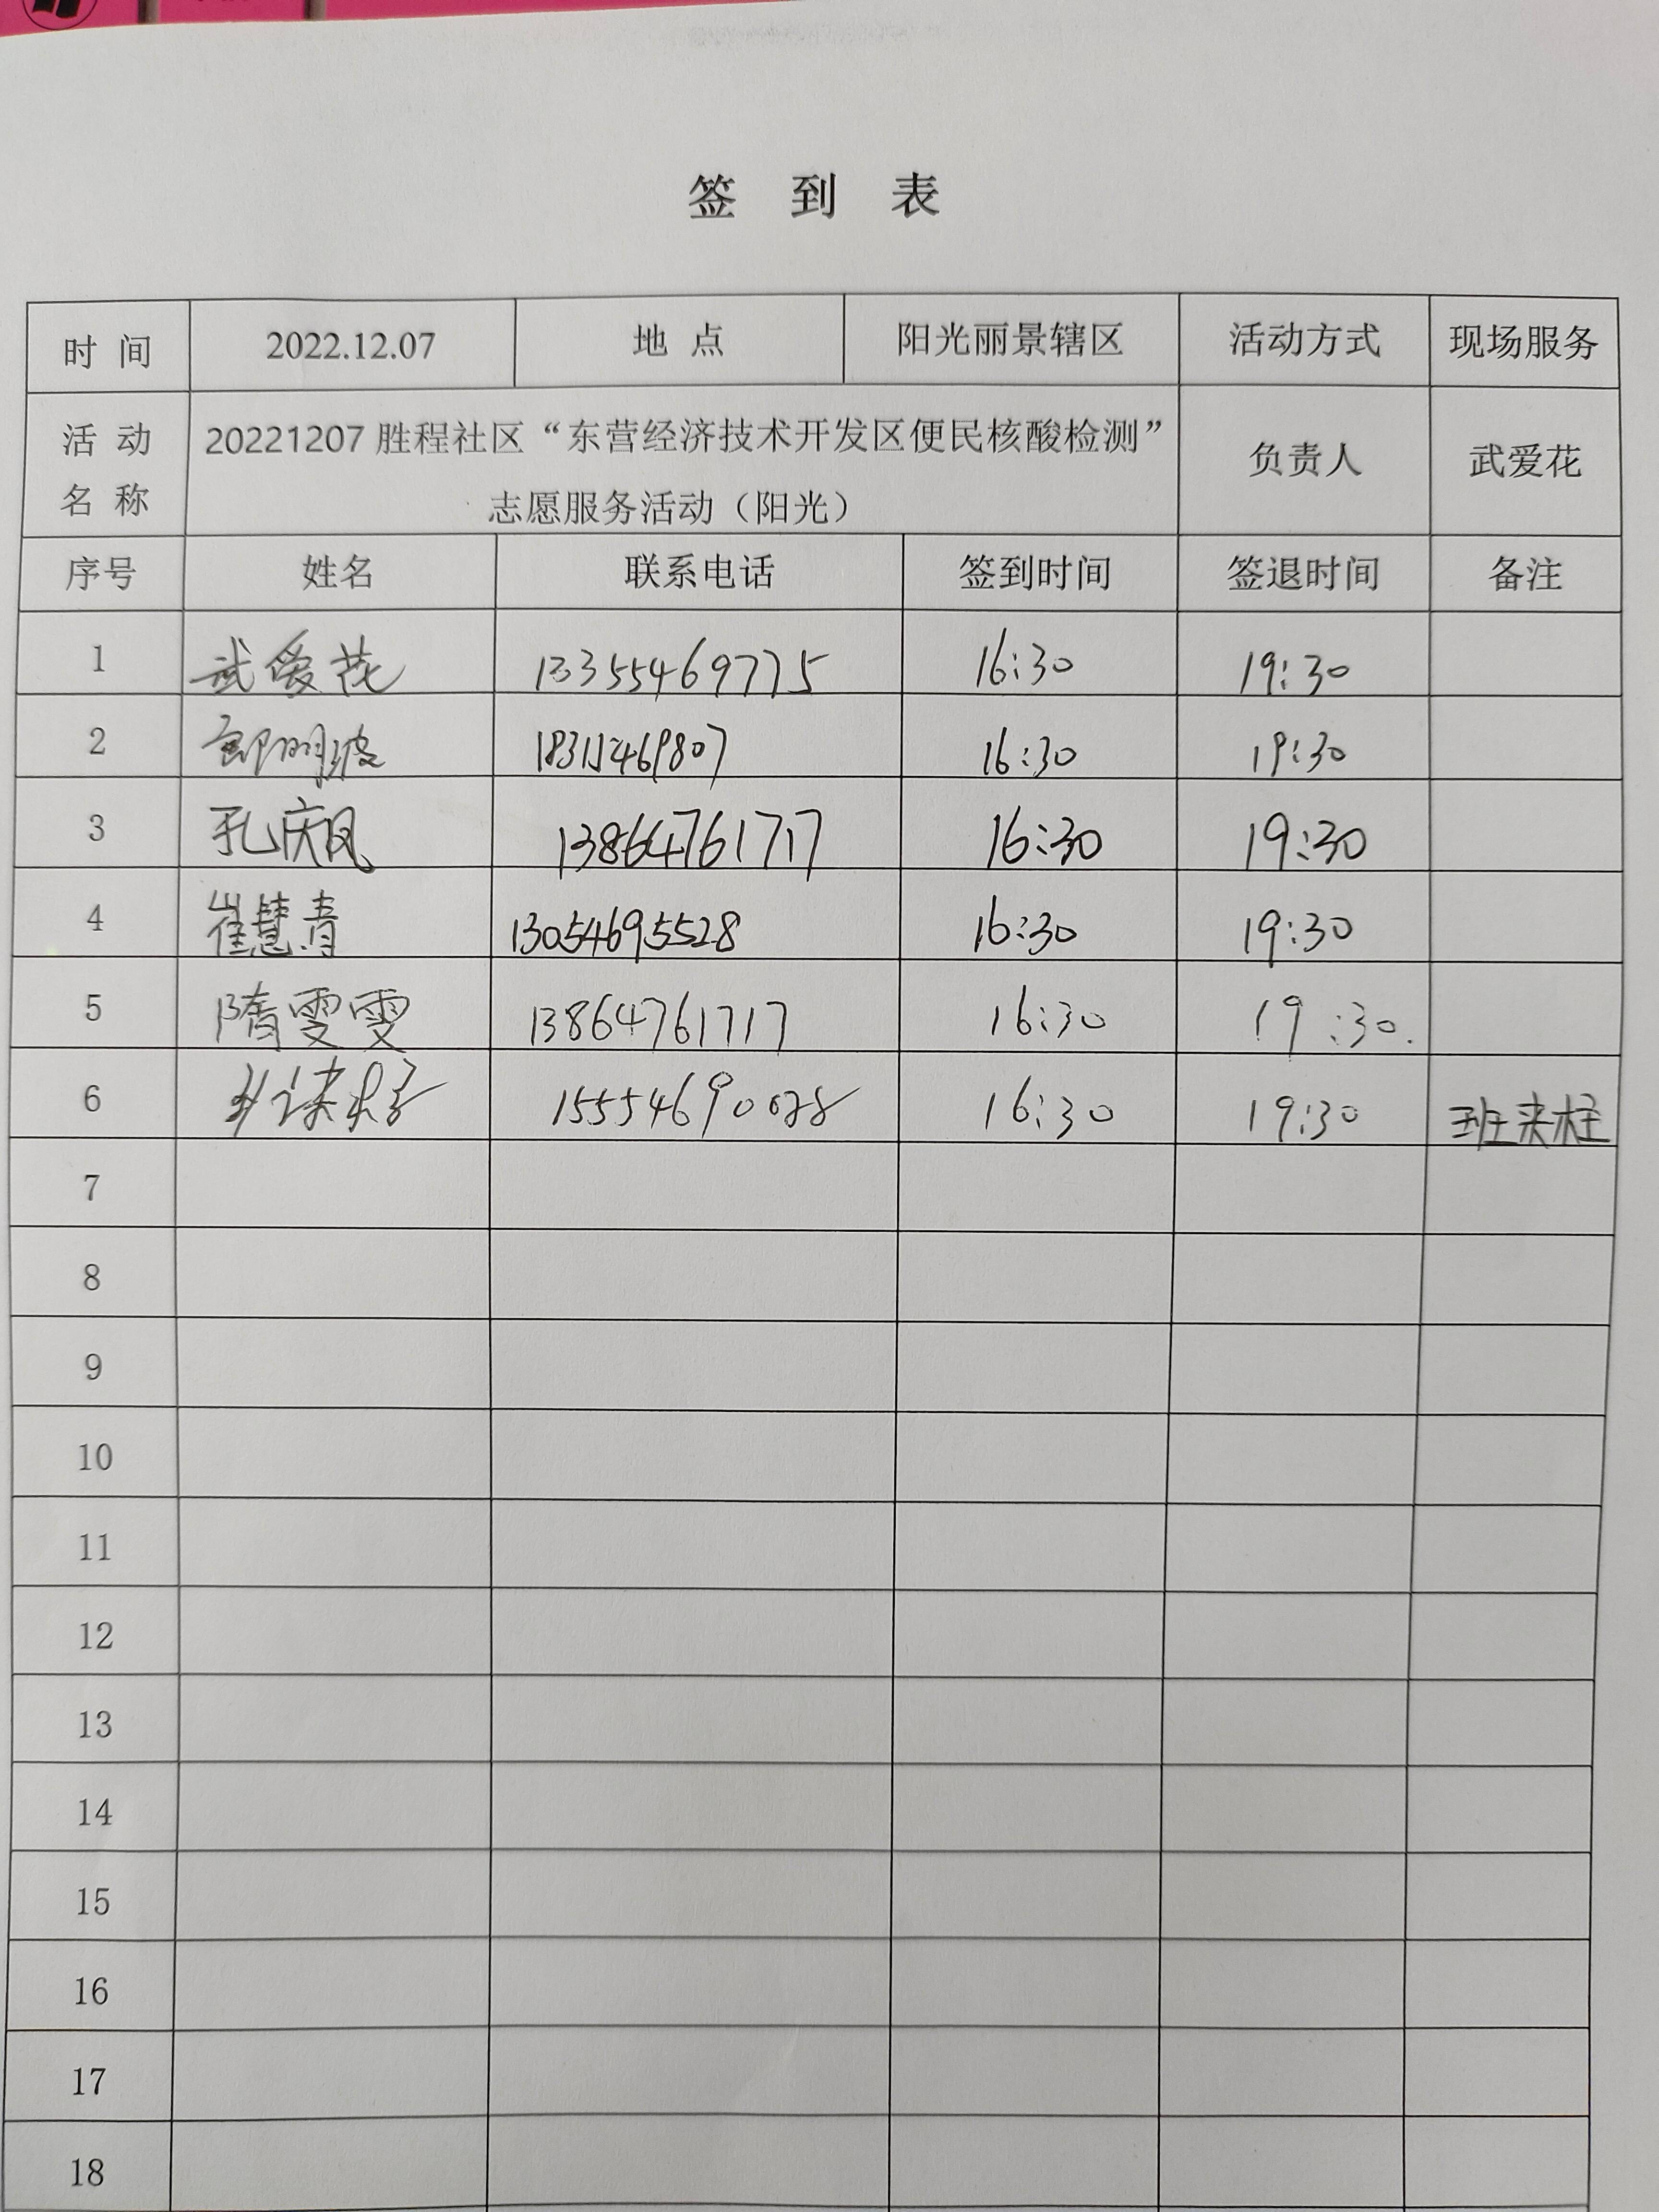 签 到 表
时 间 2022.12.07 地 点 阳光丽景辖区 活动方式 现场服务
活 动 名 称 20221207 胜程社区“东营经济技术开发区便民核酸检测” 负责人 武爱花
志愿服务活动（阳光）
序号 姓名 联系电话 签到时间 签退时间 备注
1 武爱花 13355469775 16:30 19:30
2 16:30 19:30
3 孔庆凤 13864761717 16:30 19:30
4 崔慧青 13054695528 16:30 19:30
5 隋雯雯 13864761717 16:30 19:30.
6 16:30 19:30 班来柱
7
8
9
10
11
12
13
14
15
16
17
18